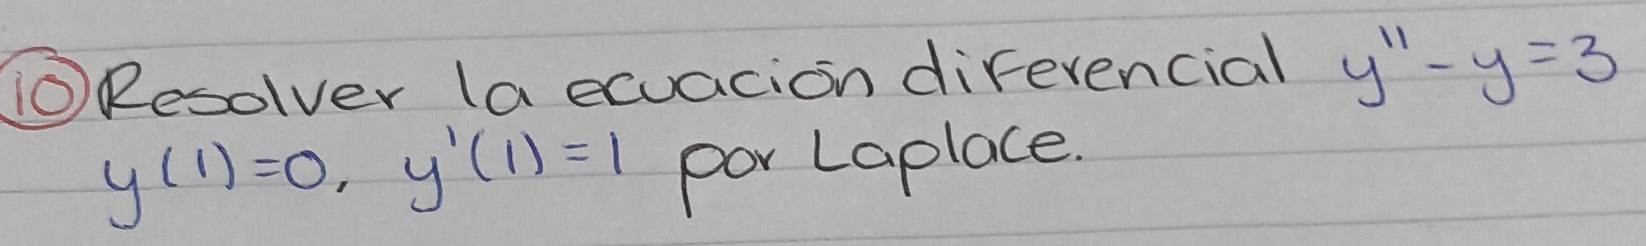 10 Resolver la ecuación diferencial y'' - y = 3
y(1) = 0, y'(1) = 1 por Laplace.